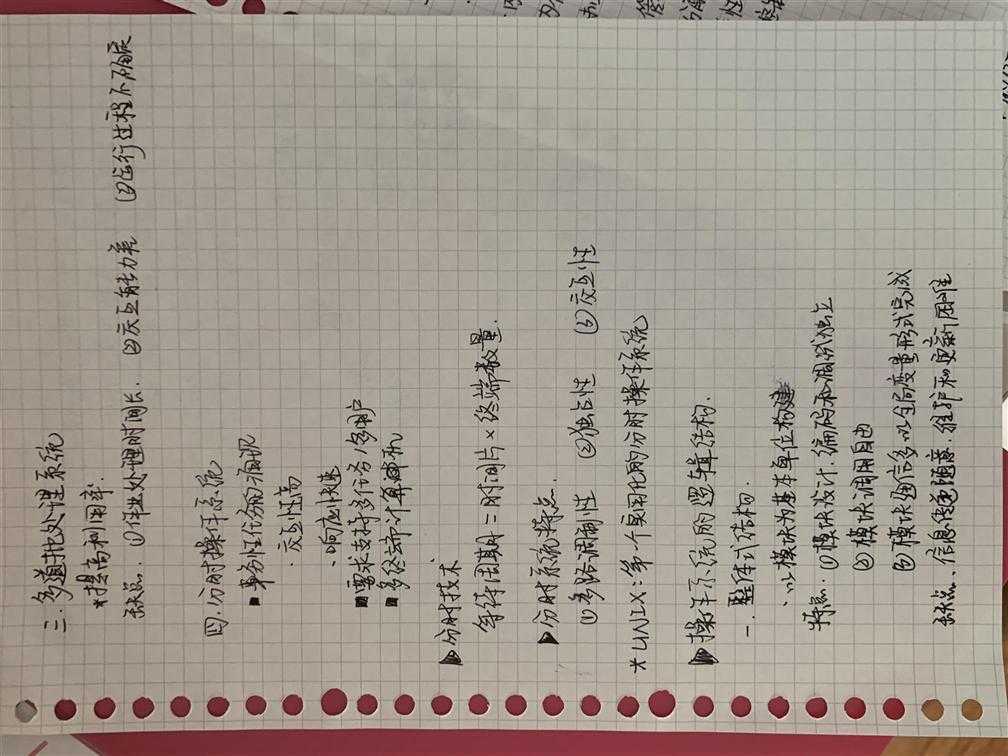 三. 多道批处理系统
*提高利用率.
缺点. ①作业处理时间长. ②交互能力差 ③运行过程不确定
四. 分时操作系统
■ 事务性任务的涌现
· 交互性高
· 响应快速
■ 要求支持多任务/多用户
■ 多终端计算机
▶ 分时技术
等待周期=时间片×终端数量.
▶ 分时系统特点.
①多路调制性 ②独占性 ③交互性
* UNIX:第一个实用化的分时操作系统
▶ 操作系统的逻辑结构.
一. 整体式结构.
· 以模块为基本单位构建
特点: ①模块设计.编码和调试独立
②模块调用自由
③模块通信多以全局变量形式完成
缺点. 信息传递随意.维护和更新困难